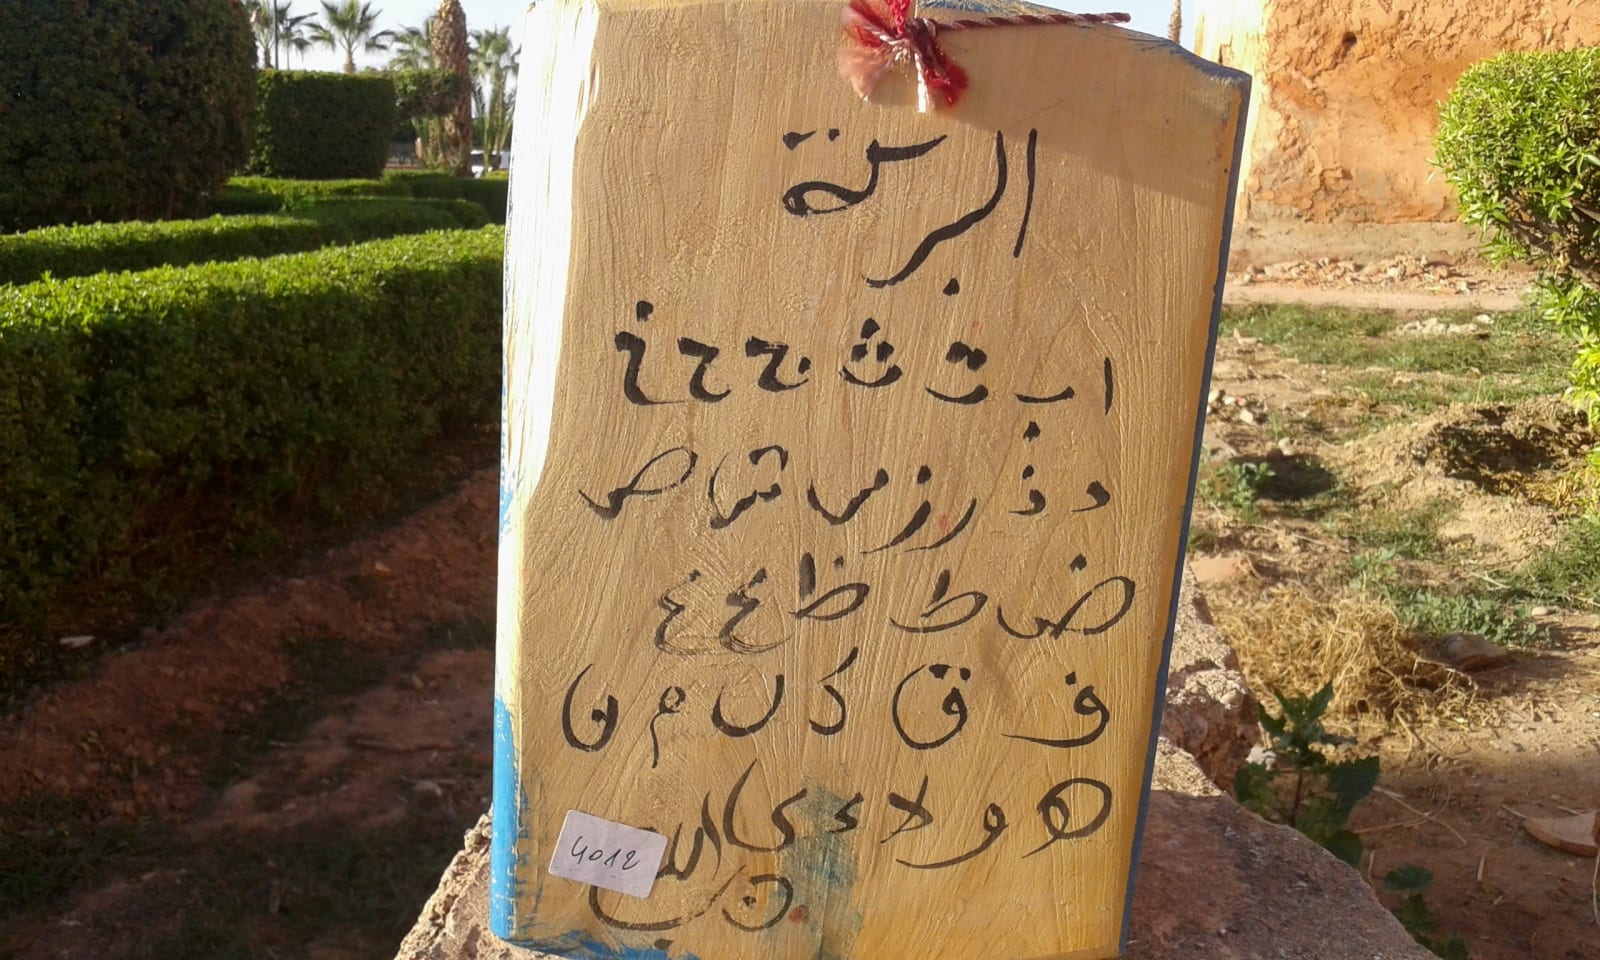 البركة
ا ب ت ث ج ح خ
د ذ ر ز س ش ص
ض ط ظ ع غ
ف ق ك ل م ن
ه و لا ء ي
4012